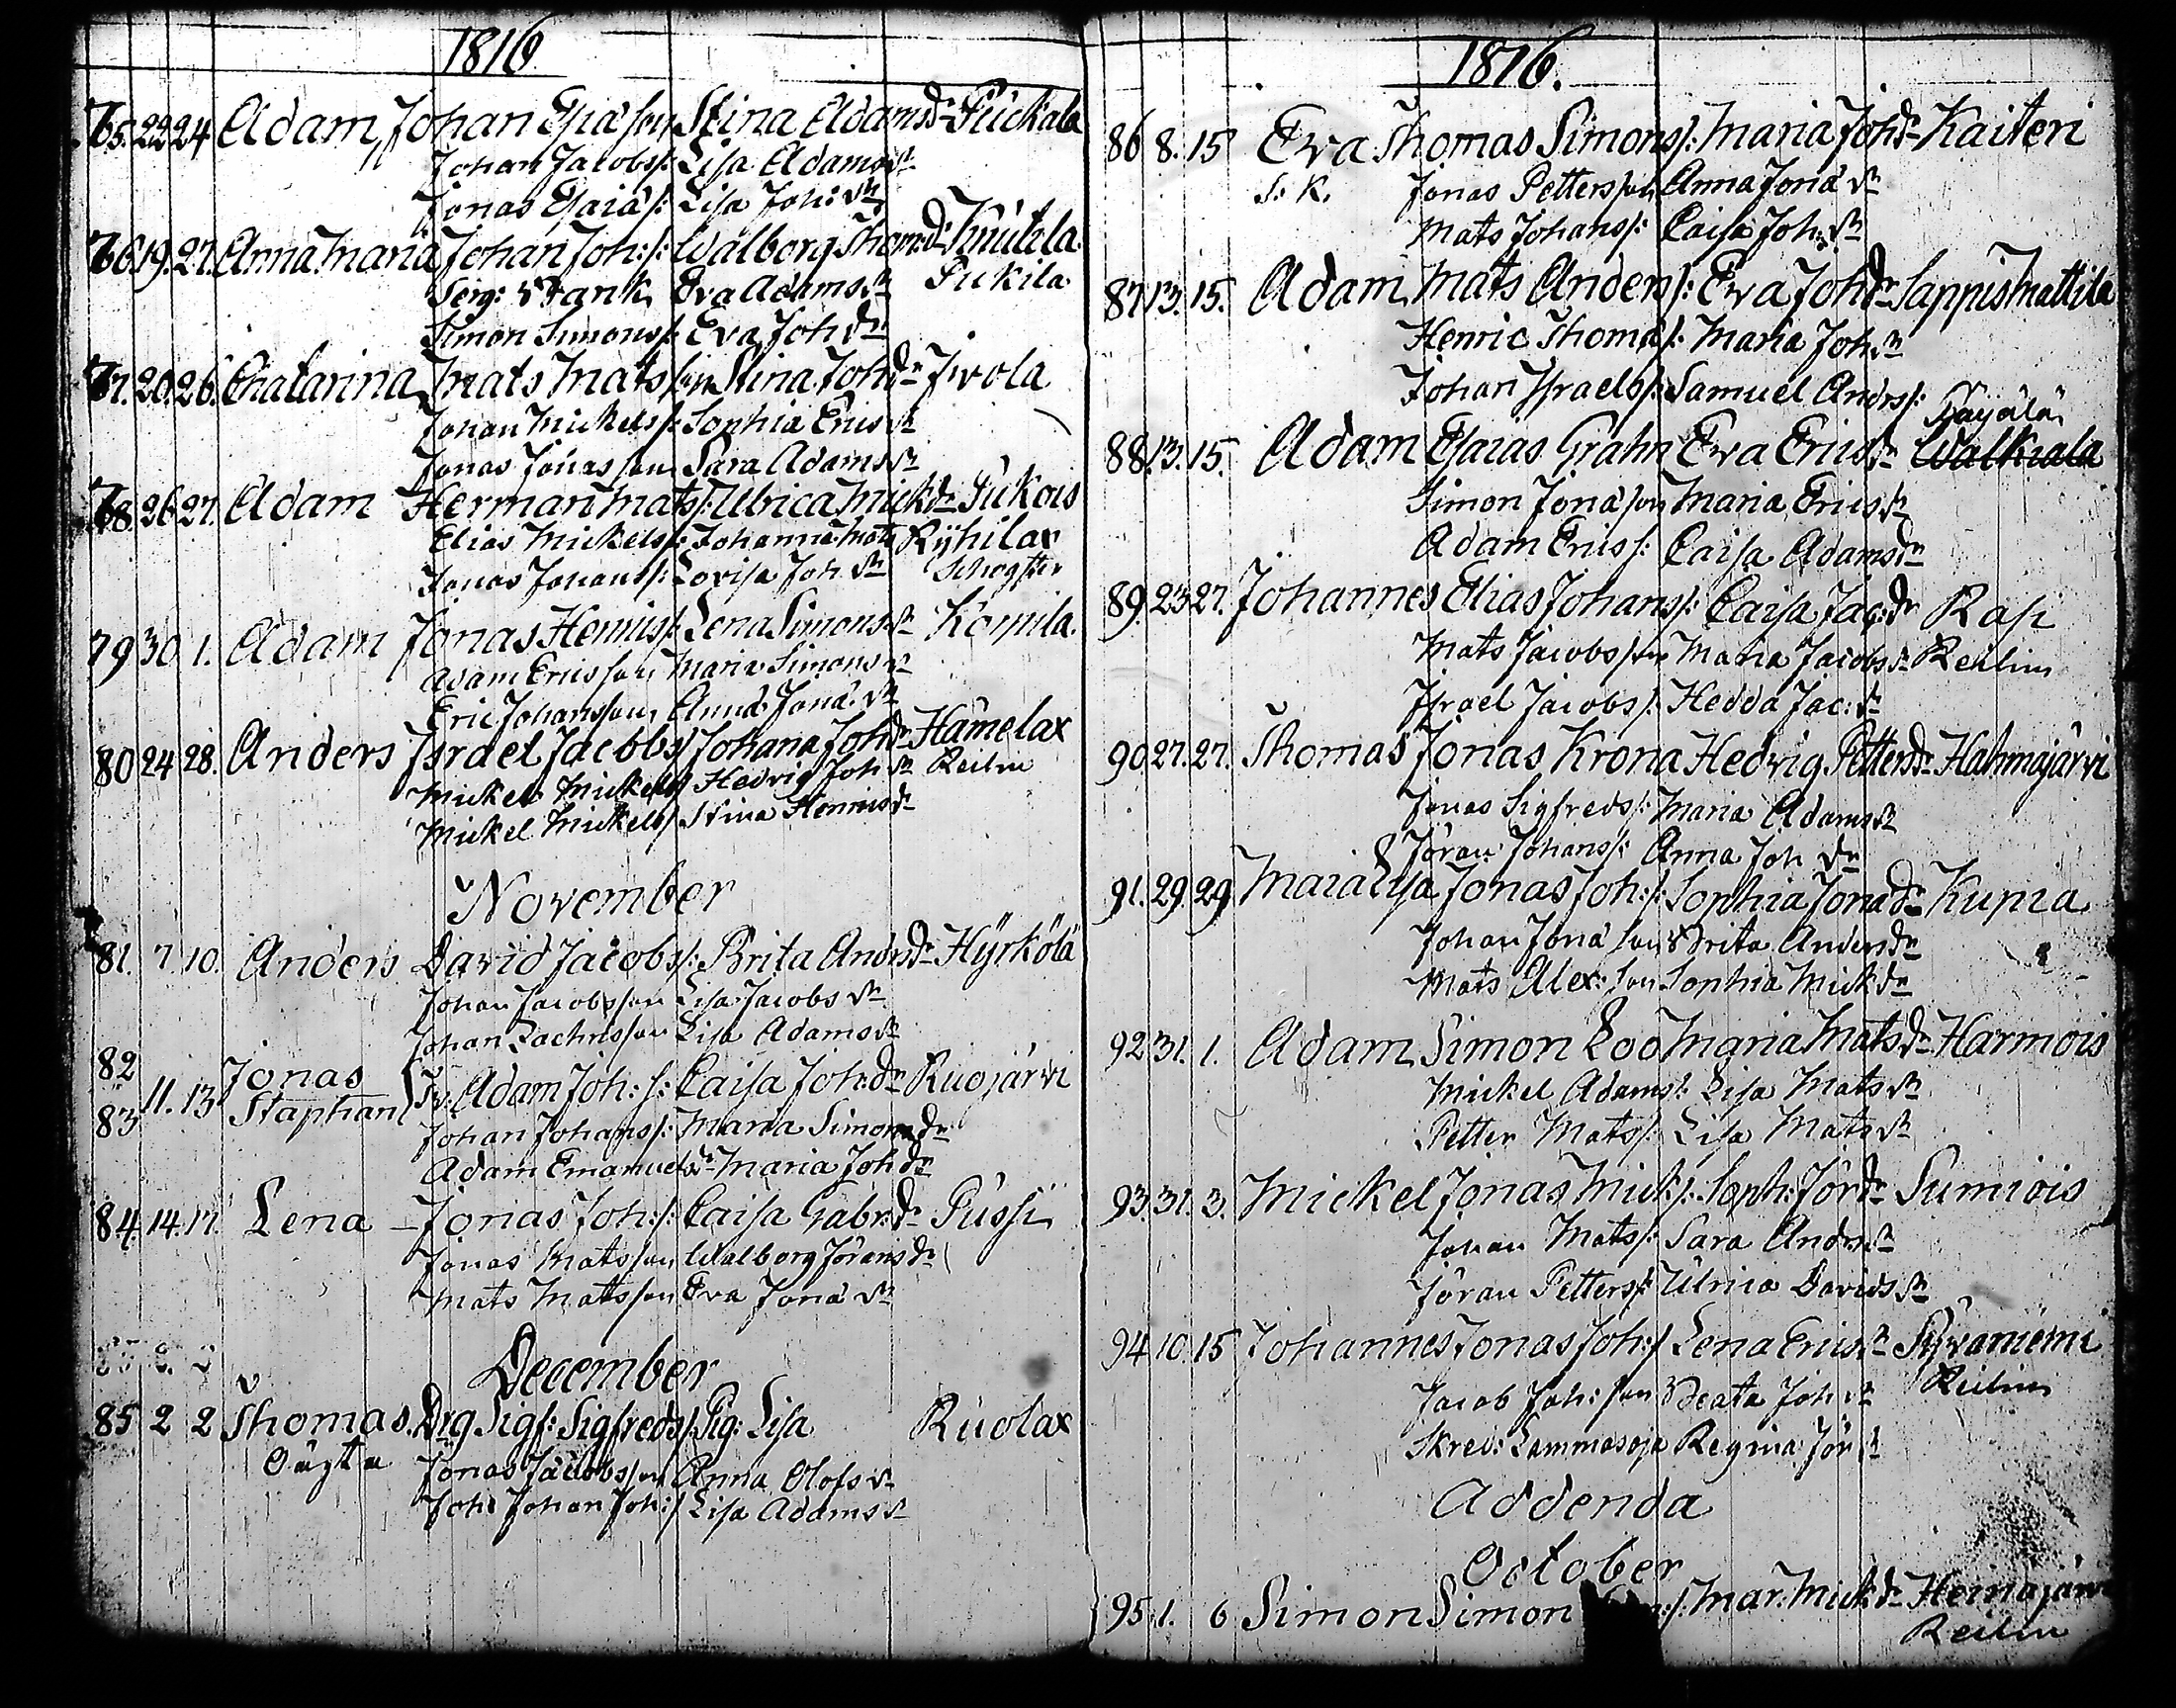 1816.
75. 22 24 Adam Johan Esaiæson Stina Adamsdr Pückala
Johan Jacobs/: Lisa Adamsdr
Jonas Esaiæ/: Lisa Joh: dr
76. 19. 27. Anna Maria Johan Joh:/: Walborg Thom:dr Knutila
Serg: Frank Eva Adamsdr Pukila
Simon Simons/: Eva Joh dr
77. 20. 26. Chatarina Mats Matsson Stina Joh dr Ivola
Johan Mickels/: Sophia Ericsdr
Jonas Jonasson Sara Adamsdr
78. 26. 27. Adam Herman Mats/: Ulrica Mickdr Pukois
Elias Mickels/: Johanna Mats Ryhilax
Jonas Johans/: Lovisa Joh dr
79 30 1. Adam Jonas Henrics/: Lena Simonsdr Kompila
Adam Ericsson Maria Simonsdr
Eric Johansson Anna Jona dr
80 24 28. Anders Israel Jacobs/ Johana Johdr Hamelax
Mickel Mickels/ Hedvig Joh dr Reilin
Mickel Mickels/ Stina Henricsdr
November
81. 7. 10. Anders David Jacobs/: Brita Andrsdr Hyrkölä
Johan Jacobsson Lisa Jacobs dr
Johan Zachrisson Lisa Adamsdr
82
11. 13 Jonas Tv: Adam Joh:/: Caisa Joh:dr Ruojärvi
83 Staphan Johan Johans/: Maria Simonsdr
Adam Emanuels Maria Johdr
84. 14. 17. Lena – Jonas Joh:/: Caisa Gabr:dr Püssi
Jonas Matsson Walborg Jöransdr
Mats Matsson Eva Jona dr
December
85 2 2 Thomas. Drg Sigf: Sigfreds/. Pig: Lisa Ruolax
Oägta Jonas Jacobsson Anna Olofsdr
Johan Joh:/ Lisa Adamsdr
1816.
86 8. 15 Eva Thomas Simons/: Maria Johdr Kaiteri
S: K. Jonas Pettersson Anna Jona dr
Mats Johans/: Caisa Joh: dr
87. 13. 15. Adam Mats Anders/: Eva Johdr Sappis Mattila
Henric Thomæ/: Maria Joh dr
Johan Israels/: Samuel Andrs/:
88. 13. 15. Adam Esaias Grahn Eva Ericsdr Walkiala
Simon Jonasson Maria Erics dr
Adam Erics/: Caisa Adamsdr
89. 23 27. Johannes Elias Johans/: Caisa Jac:dr Rasi
Mats Jacobsson Maria Jacobsdr Reilin
Israel Jacobs/: Hedda Jac: dr
90. 27. 27. Thomas Jonas Krona Hedvig Pettersdr Hahmajärvi
Jonas Sigfreds/: Maria Adamsdr
Jöran Johans/: Anna Joh dr
91. 29. 29 Maria Lisa Jonas Joh:/: Sophia Jonadr Kupia
Johan Jonasson Brita Andersdr
Mats Alex: son Sophia Mickdr
92 31. 1. Adam Simon Loo Maria Matsdr Harmois
Mickel Adams/: Lisa Mats dr
Petter Mats/: Lisa Mats dr
93. 31. 3. Mickel Jonas Mick/: Soph: Jördr Sumiois
Johan Mats/: Sara Andrsdr
Jöran Petters/: Ulrica Davids dr
94 10. 15 Johannes Jonas Joh:/ Lena Ericsdr Syvaniemi
Jacob Joh: son Beata Joh dr Reilin
Skred: Lammasoja Regina Jör dr
Addenda
October
95. 1. 6 Simon Simon Mar: Mickdr Heinäjärvi
Reilin